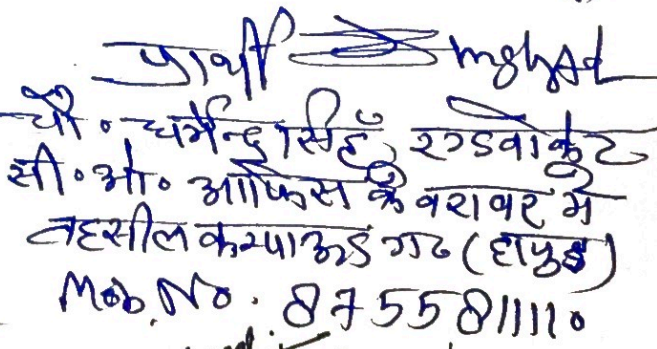 प्रार्थी
चौ० धर्मेन्द्र सिंह, एडवोकेट
सी०ओ० आफिस के बराबर में
तहसील कम्पाऊंड गढ़ (हापुड़)
Mob. No. 8755811110